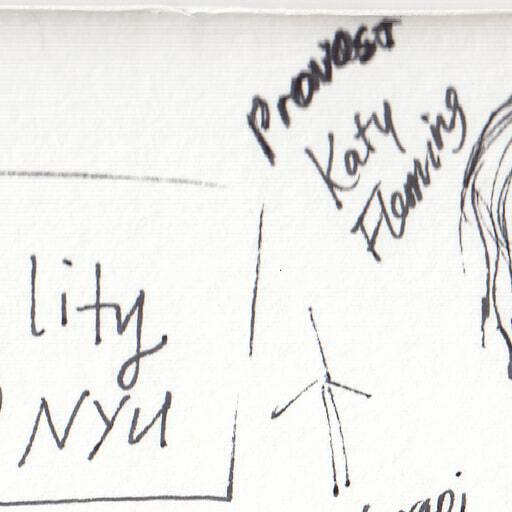 Provost
Katy
Fleming
lity
NYU